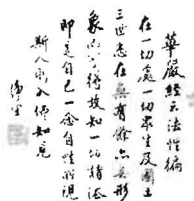 華嚴經云法性徧
在一切處一切眾生及國土
三世悉在無有餘亦無形
象而可得故知一切諸法
即是自己一念自性現
斯人永入佛知見